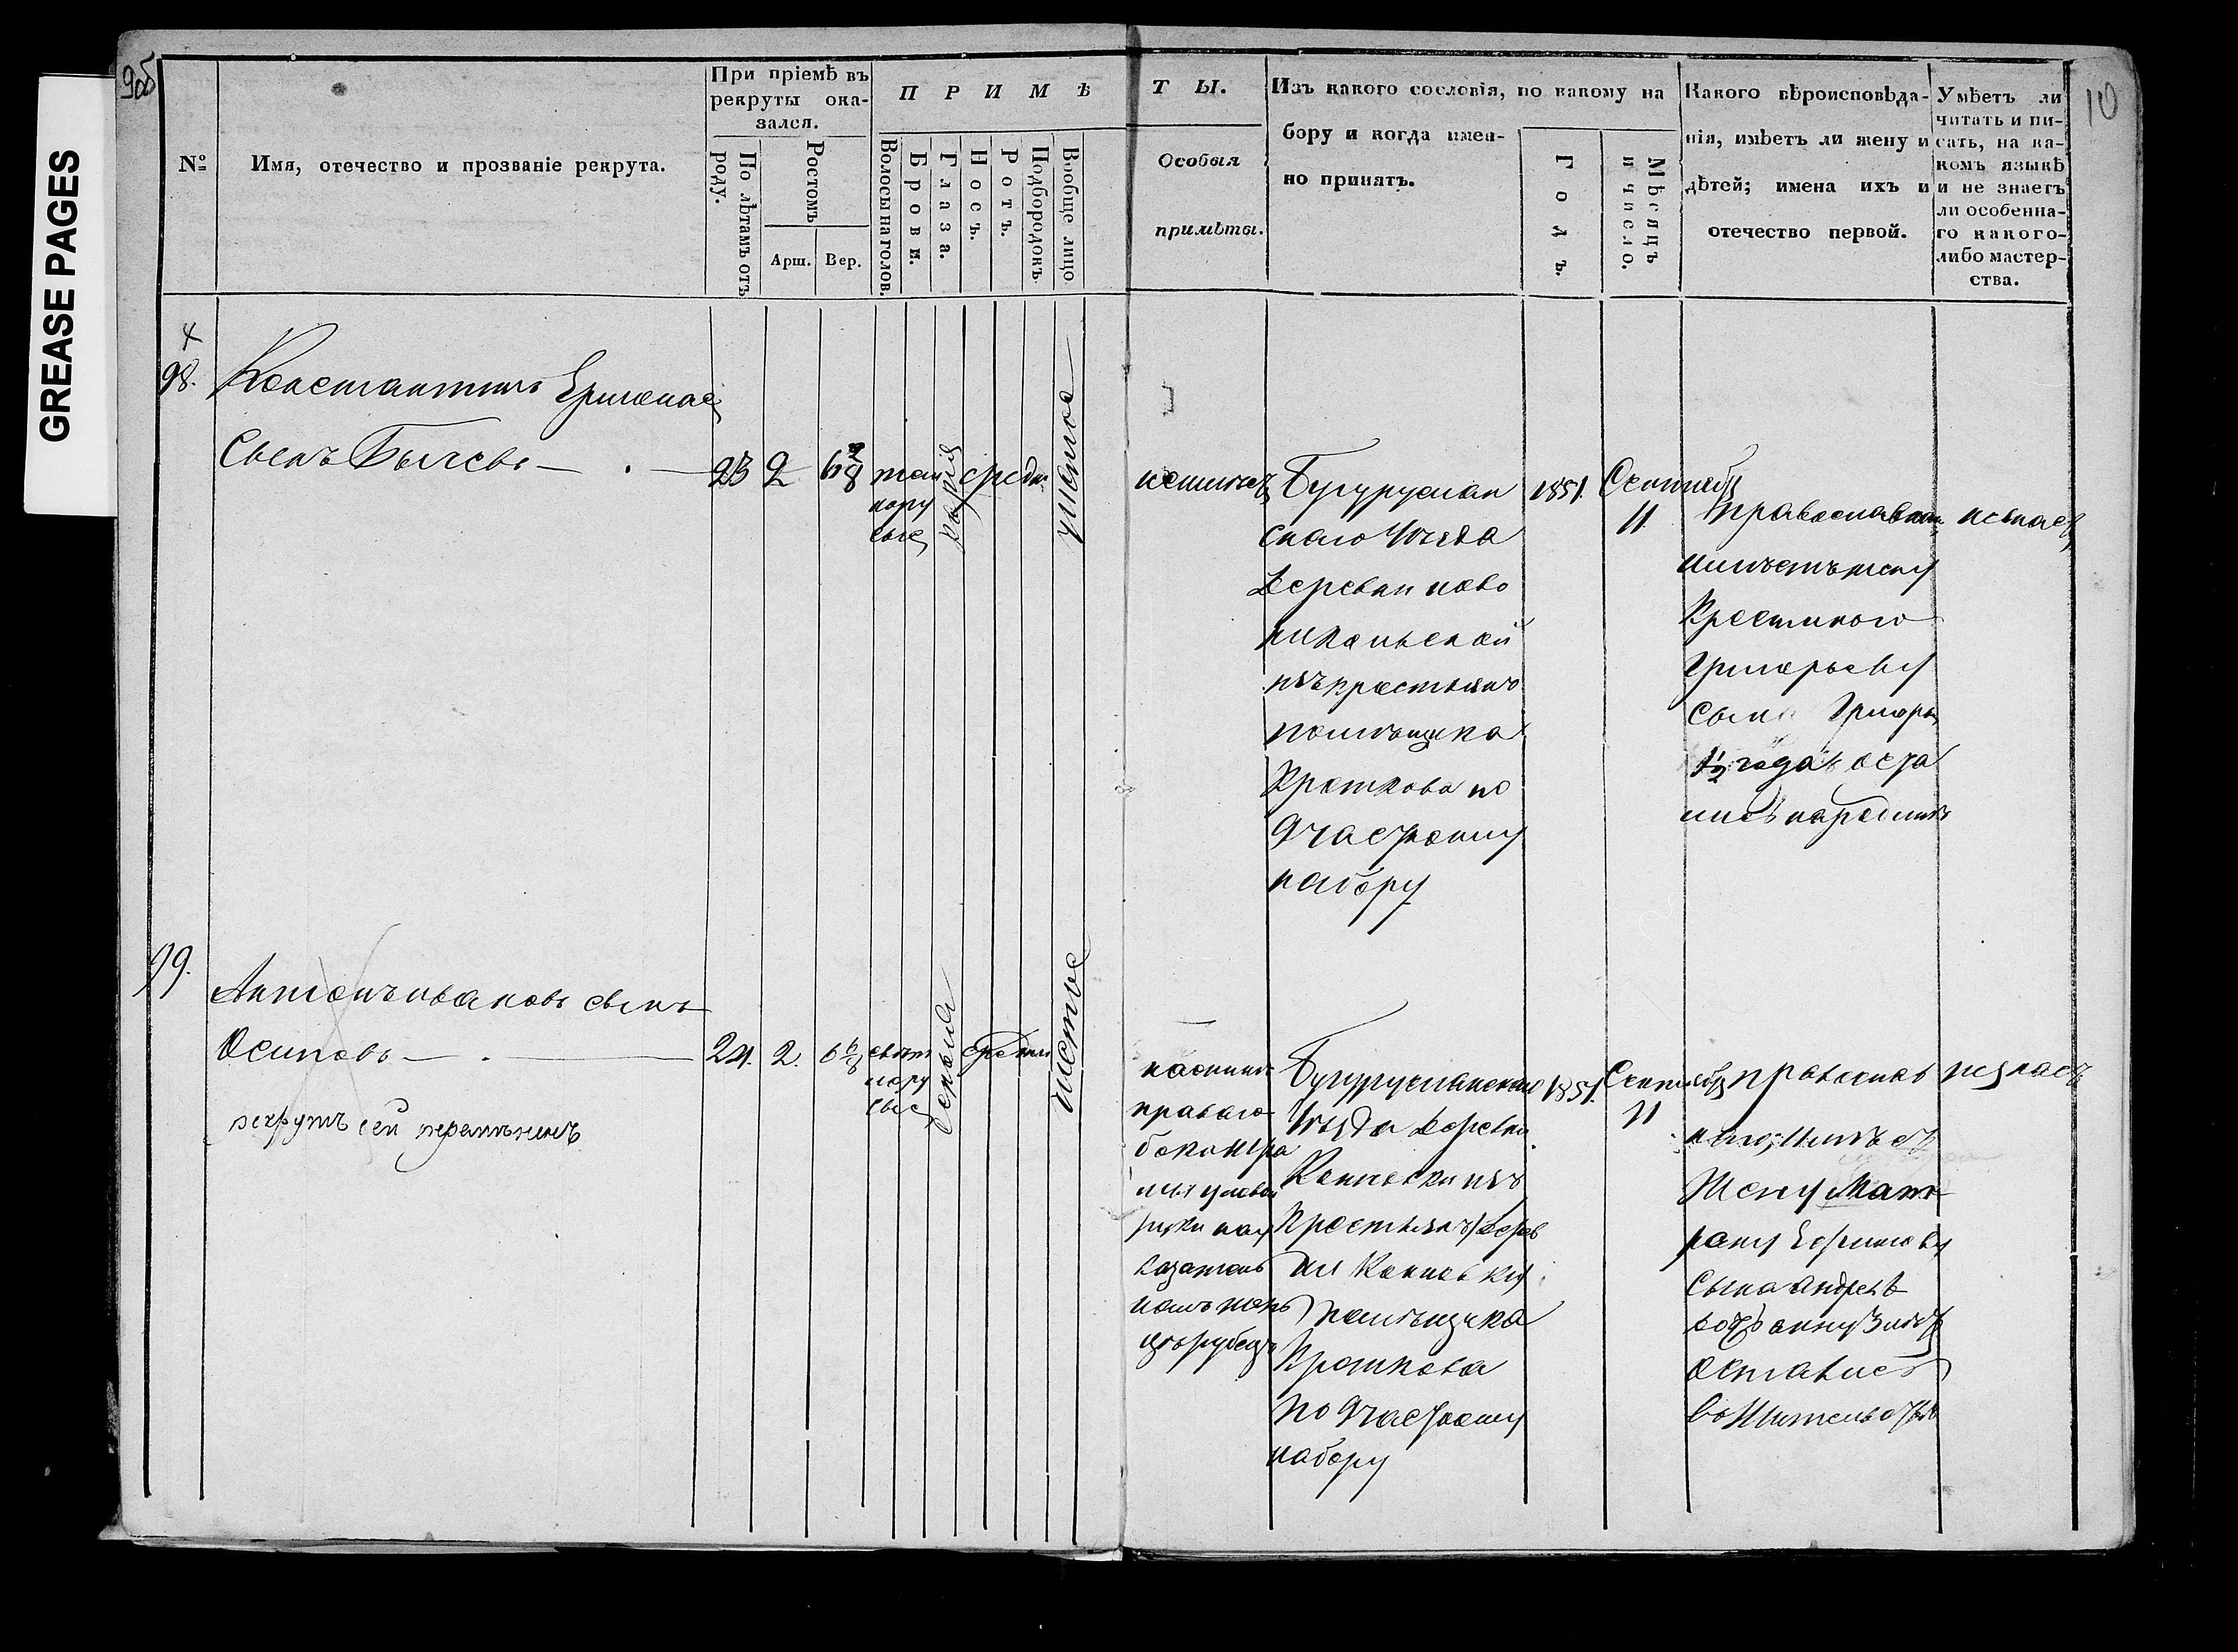 GREASE PAGES
9об
10
№
Имя, отечество и прозваніе рекрута.
При пріемѣ въ
рекруты ока-
зался.
По лѣтамъ отъ
роду.
Ростомъ
Арш.
Вер.
ПРИМѢ
Волосы на голов.
Брови.
Глаза.
Носъ.
Ротъ.
Подбородокъ
Вообще лицо
ТЫ.
Особыя
примѣты.
Изъ какого сословія, по какому на
бору и когда имен-
но принятъ.
Годъ.
Мѣсяцъ
и число.
Какого вѣроисповѣда-
нія, имѣетъ ли жену и
дѣтей; имена ихъ и
отечество первой.
Умѣетъ ли
читать и пи-
сать, на ка-
комъ языкѣ
и не знаетъ
ли особенна-
го какого-
либо мастер-
ства.
98.
Константинъ
Сынъ
23 2 6
темн
нору
сыя
карія
средн
умѣрное
Бугуруслан
скаго Уѣзда
деревни ново
никольской
изъ крестьянъ
помѣщика
Краткова по
9 частному
набору
1851.
Сентябр
11
православнаго
имѣетъ жену
Григорьеву
сына Григорь
1/2 года
на родинѣ
незнаетъ
99.
Антонъ Ивановъ сынъ
Осиповъ
рекрутъ сей перемѣненъ
24. 2. 6 6/8
свѣт
лору
сые
сѣрыя
средни
чистое
праваго
бока
лѣвой
руки
рубецъ
Бугурусланскаго
Уѣзда деревни
изъ
крестьянъ дерев
ни
помѣщика
Краткова
по 9 частному
набору
1851.
Сентябр
11
православ
наго, имѣетъ
жену Мат
рену Ефимову
сына Андрея
дочь анну
оставилъ
въ жительствѣ
незнаетъ